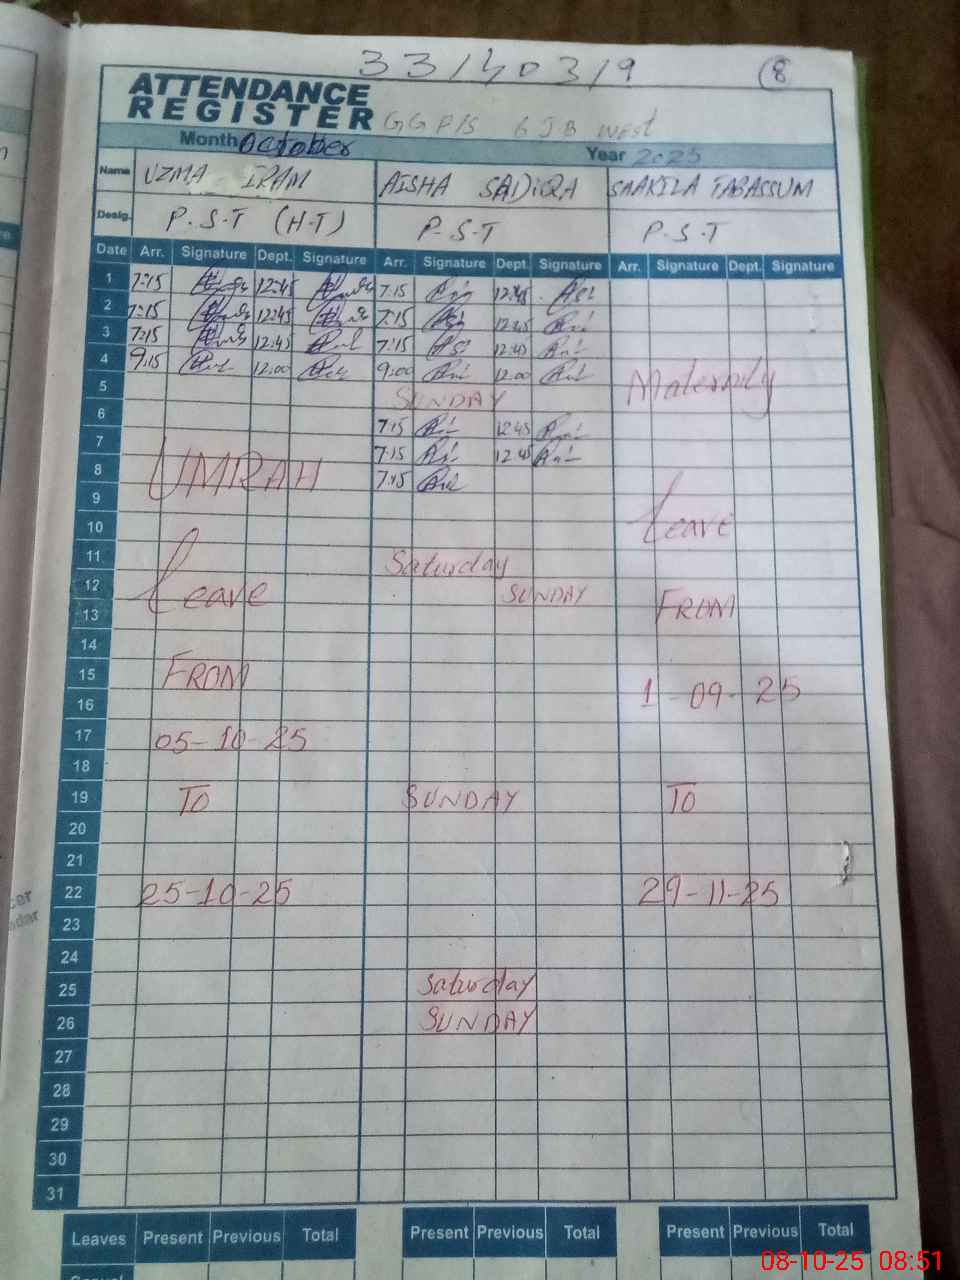 33140319 8
ATTENDANCE
REGISTER GGP/S 6 JB West
Month October Year 2025
Name UZMA IRAM AISHA SADIQA SAAKILA TABASSUM
Desig. P.S.T (H-T) P-S-T P.S-T
Date Arr. Signature Dept. Signature Arr. Signature Dept. Signature Arr. Signature Dept. Signature
1 7:15 12:45 7:15 12:45
2 7:15 12:45 7:15 12:45
3 7:15 12:45 7:15 12:45
4 9:15 12:00 9:00 12:00 Maternity
5 SUNDAY
6 7:15 12:45
7 7:15 12:45
8 UMRAH 7:15
9
10 Leave
11 Saturday
12 Leave SUNDAY
13 FROM
14
15 FROM
16 1-09-25
17 05-10-25
18
19 TO SUNDAY TO
20
21
22 25-10-25 29-11-25
23
24
25 Saturday
26 SUNDAY
27
28
29
30
31
Leaves Present Previous Total Present Previous Total Present Previous Total
08-10-25 08:51